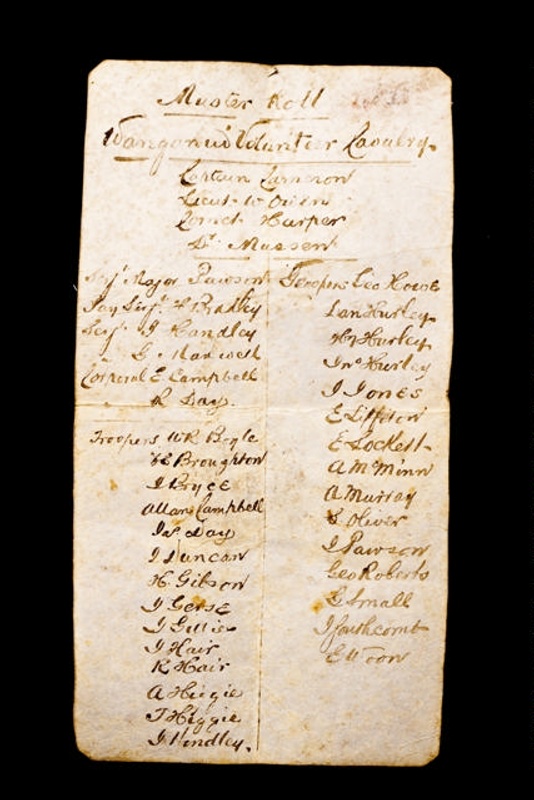 Muster Roll
Wanganui Volunteer Cavalry.
Captain Cameron
Lieut. W Owen
Cornet Harper
Dr. Mussen
Serjt. Major Pawson
Pay Serjt. F Bradley
Serjt. J Handley
G. Maxwell
Corporal E. Campbell
R Day.
Troopers W R Boyle
Broughton
J Bryce
Allan Campbell
Jas. Day
J Duncan
H. Gibson
J Gerse
J Gillis
J Hair
R Hair
A Higgie
T Higgie
J Hindley.
Troopers Geo Howe
Dan Hurley
Hy Hurley
Jno Hurley
J Jones
E Liffiton
E Lockett
A McMinn
A Murray
Oliver
J Pawson
Geo Roberts
G Small
J Southcombe
E W Toon